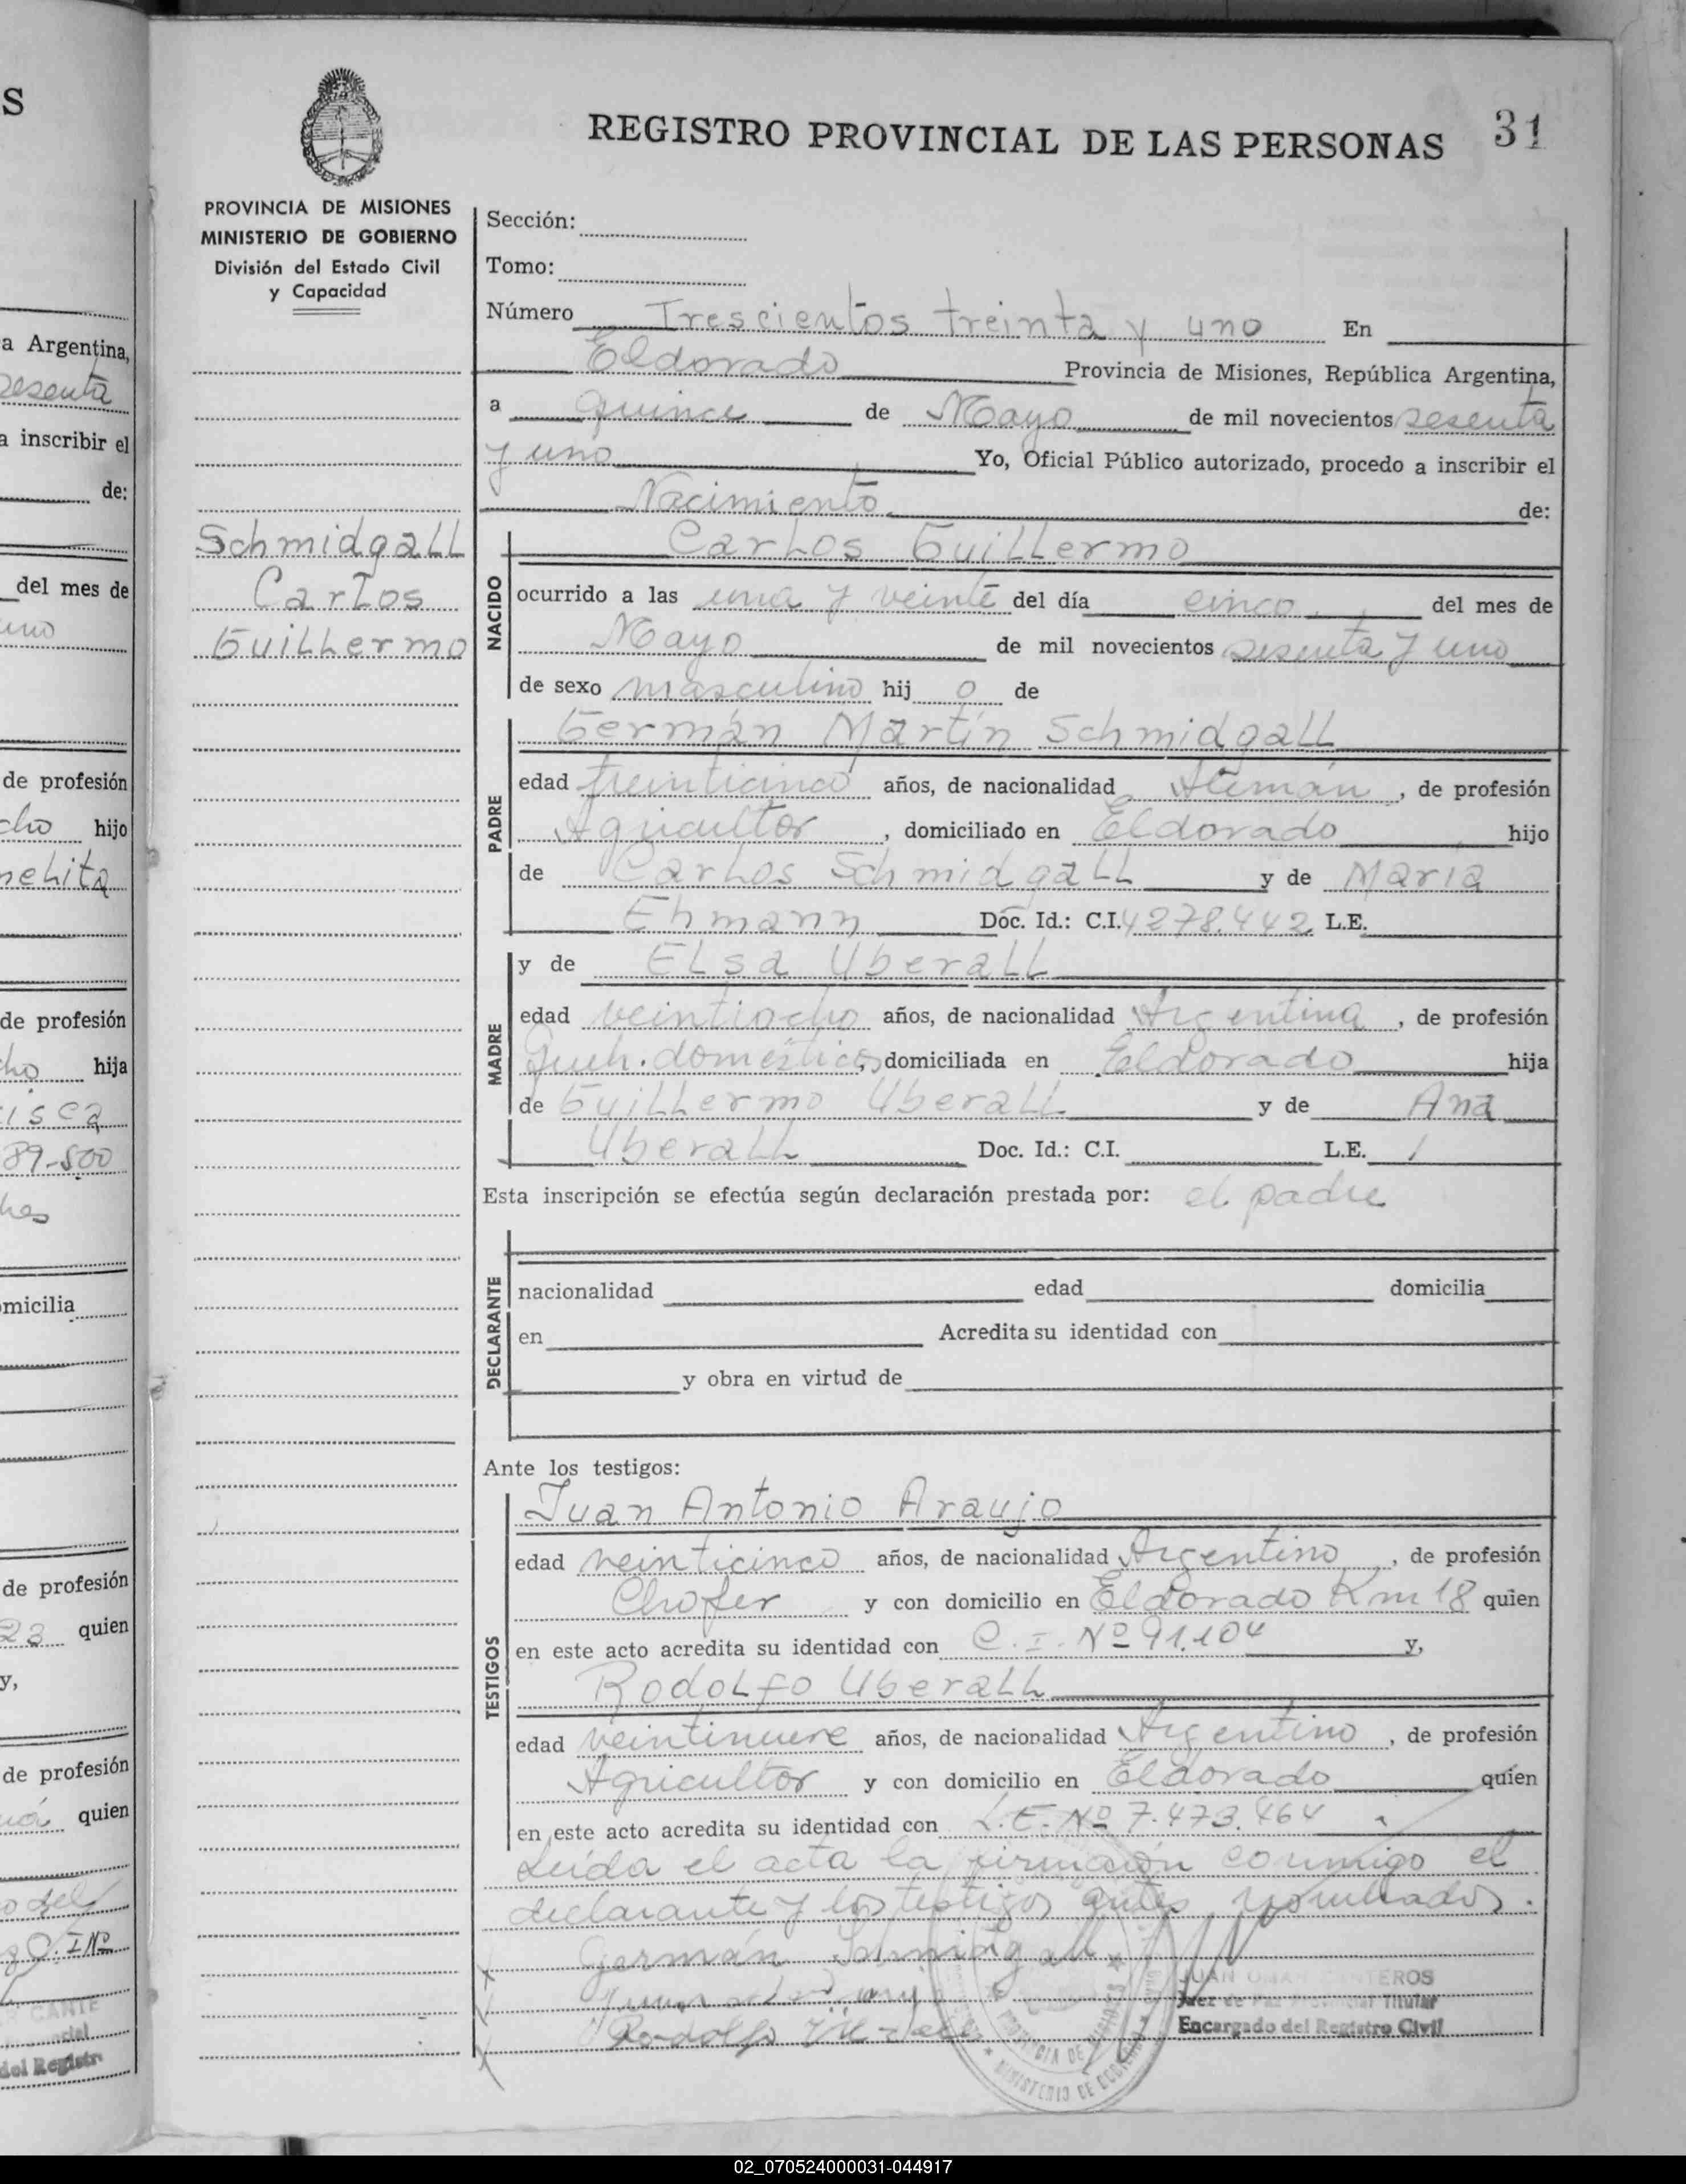 S
a Argentina,
sesenta
a inscribir el
de:
del mes de
uno
de profesión
cho hijo
nehita
de profesión
cho hija
isca
89-500
hes
micilia
de profesión
23 quien
y,
de profesión
quien
o del
C. I Nº
del Registr
31
REGISTRO PROVINCIAL DE LAS PERSONAS
PROVINCIA DE MISIONES
MINISTERIO DE GOBIERNO
División del Estado Civil
y Capacidad
Schmidgall
Carlos
Guillermo
Sección:
Tomo:
Número Trescientos treinta y uno En
Eldorado Provincia de Misiones, República Argentina,
a quince de Mayo de mil novecientos sesenta
y uno Yo, Oficial Público autorizado, procedo a inscribir el
Nacimiento de:
NACIDO
Carlos Guillermo
ocurrido a las una y veinte del día cinco del mes de
Mayo de mil novecientos sesenta y uno
de sexo masculino hij o de
PADRE
Germán Martín Schmidgall
edad treinticinco años, de nacionalidad Alemán, de profesión
Agricultor, domiciliado en Eldorado hijo
de Carlos Schmidgall y de María
Ehmann Doc. Id.: C.I. 4278.442 L.E.
MADRE
y de Elsa Uberall
edad veintiocho años, de nacionalidad Argentina, de profesión
Queh. domésticos, domiciliada en Eldorado hija
de Guillermo Uberall y de Ana
Uberall Doc. Id.: C.I. L.E. /
Esta inscripción se efectúa según declaración prestada por: el padre
DECLARANTE
nacionalidad edad domicilia
en Acredita su identidad con
y obra en virtud de
Ante los testigos:
TESTIGOS
Juan Antonio Araujo
edad veinticinco años, de nacionalidad Argentino, de profesión
Chofer y con domicilio en Eldorado Km 18 quien
en este acto acredita su identidad con C. I. Nº 91.104 y,
Rodolfo Uberall
edad veintinueve años, de nacionalidad Argentino, de profesión
Agricultor y con domicilio en Eldorado quien
en este acto acredita su identidad con L.E. Nº 7.473.464
Leída el acta la firmaron conmigo el
declarante y los testigos antes nombrados.
Germán Schmidgall
Rodolfo
JUAN OMAR CANTEROS
Juez de Paz Provincial Titular
Encargado del Registro Civil
MINISTERIO DE GOBIERNO
02_070524000031-044917